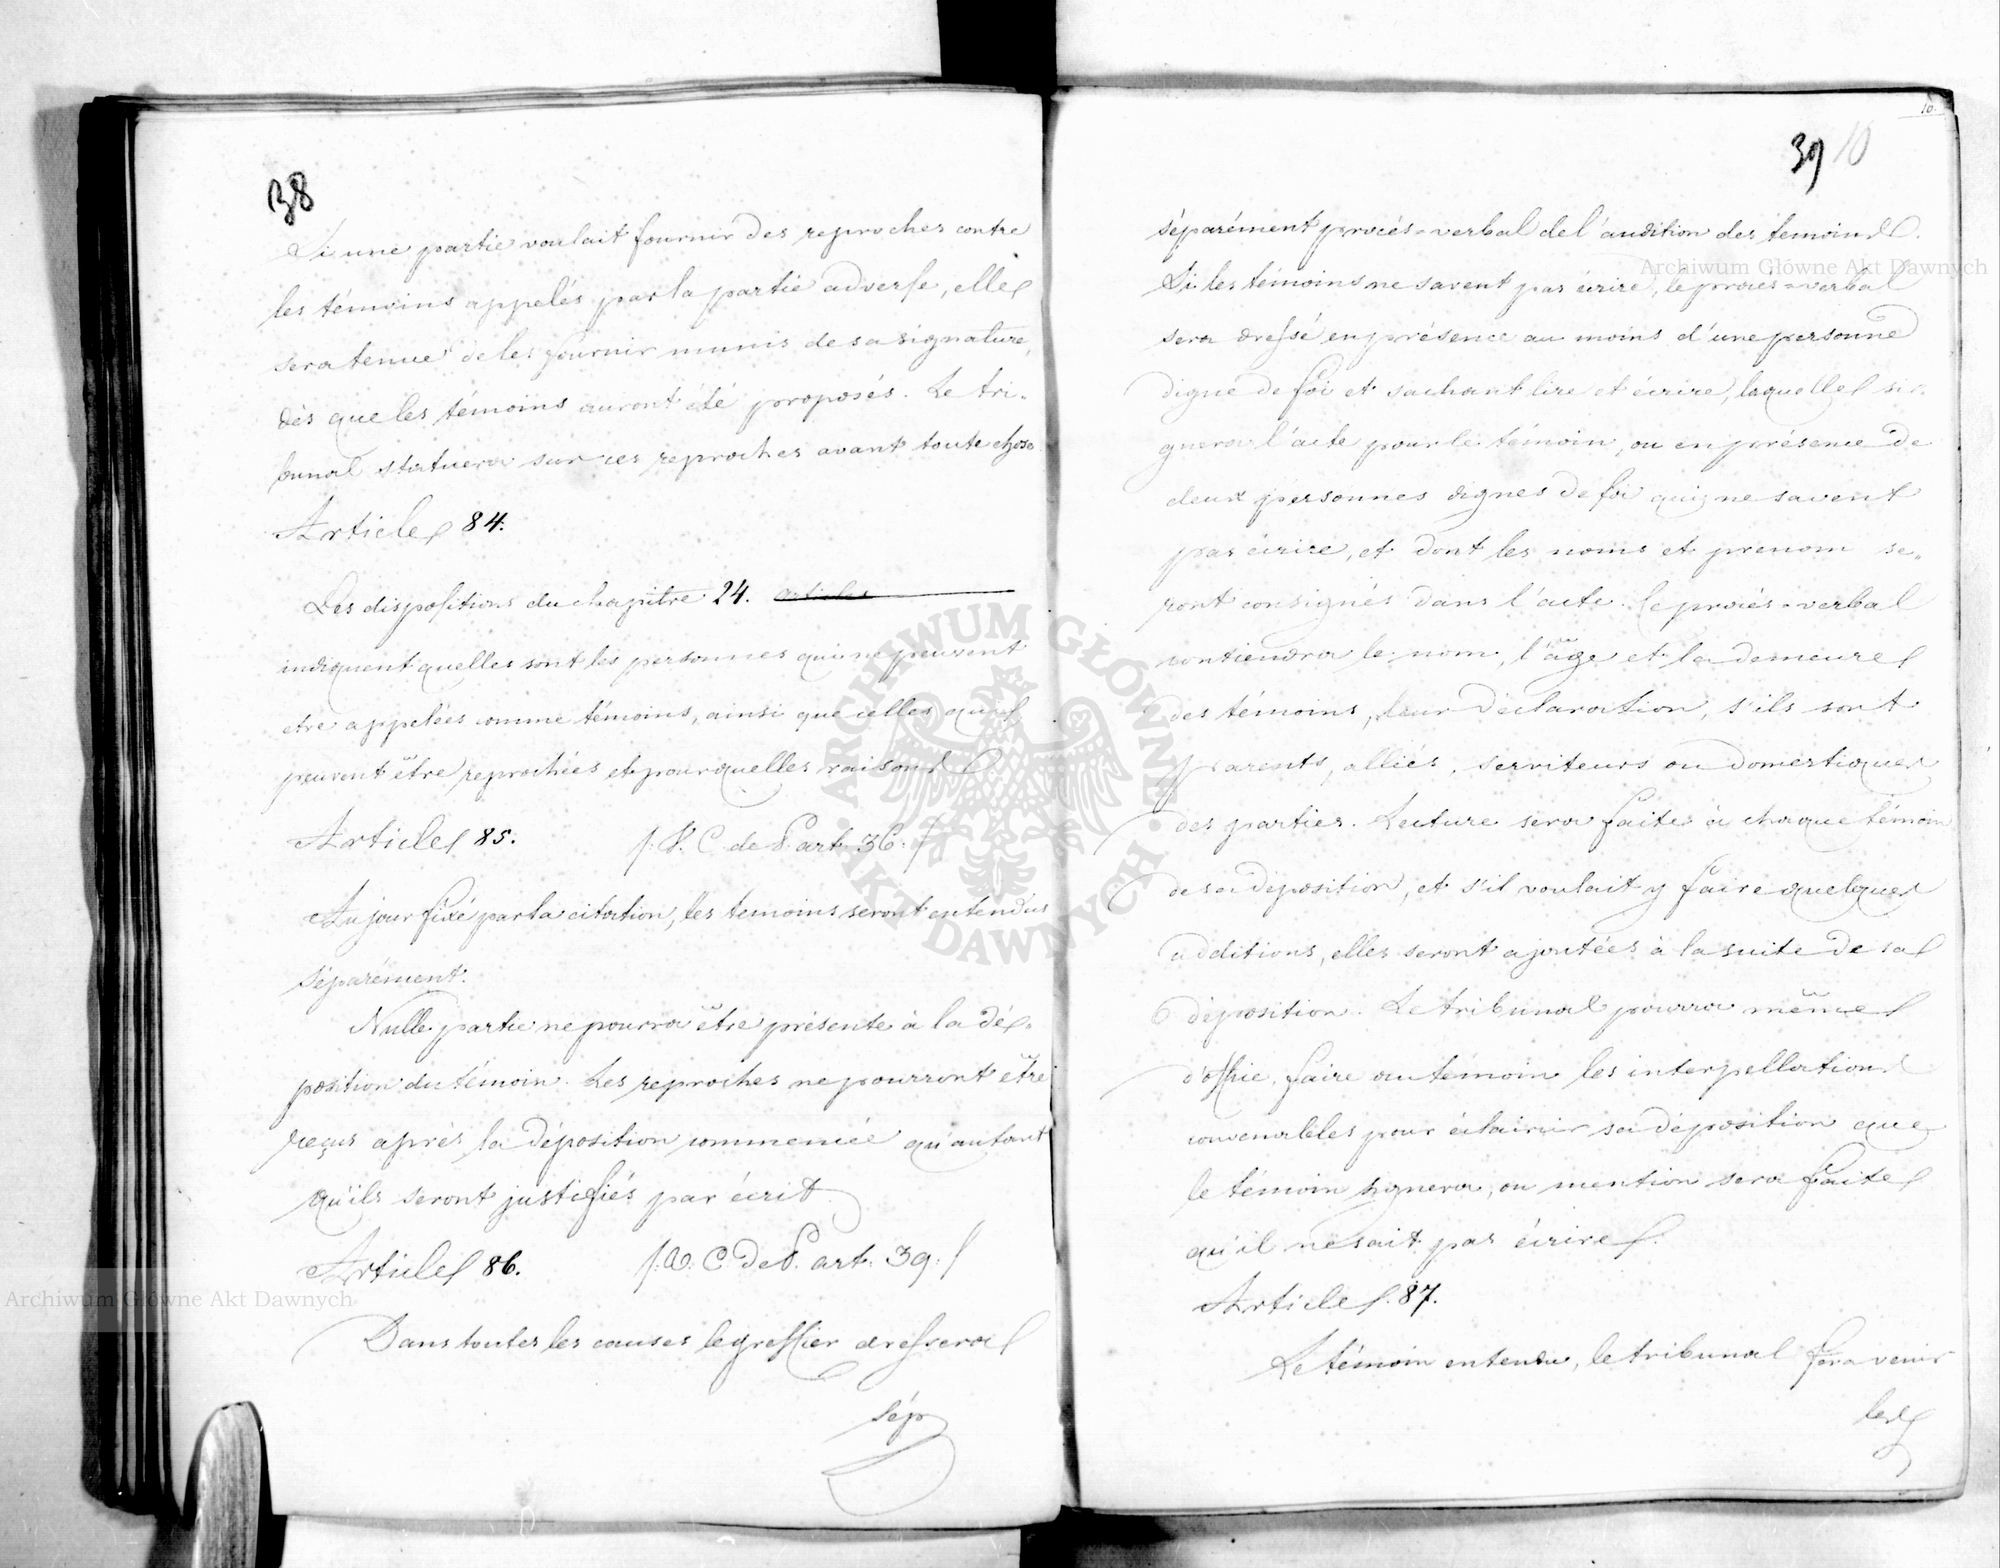 38
Si une partie voulait fournir des reproches contre
les témoins appelés par la partie adverse, elle
sera tenue de les fournir munis de sa signature,
dès que les témoins auront été proposés. Le tri-
bunal statuera sur ces reproches avant toute chose.
Article 84.
Les dispositions du chapitre 24. article
indiquent quelles sont les personnes qui ne peuvent
etre appelées comme témoins, ainsi que celles qui
peuvent être reprochées et pour quelles raisons.
Article 85. /: V. C. de P. art. 36. :/
Au jour fixé par la citation, les temoins seront entendus
séparément.
Nulle partie ne pourra être présente à la dé-
position du témoin. Les reproches ne pourront être
reçus après la déposition commencée qu'autant
qu'ils seront justifiés par écrit.
Article 86. /: V. C. de P. art. 39. :/
Dans toutes les causes le greffier dressera
sép
10.
39 10
séparément procès-verbal de l'audition des temoins.
Si les témoins ne savent pas écrire, le procès-verbal
sera dressé en présence au moins d'une personne
digne de foi et sachant lire et écrire, laquelle si-
gnera l'acte pour le témoin, ou en présence de
deux personnes dignes de foi qui ne savent
pas écrire, et dont les noms et prenom se-
ront consignés dans l'acte. Le procès-verbal
contiendra le nom, l'âge et la demeure
des témoins, leur déclaration, s'ils sont
parents, alliés, serviteurs ou domestiques
des parties. Lecture sera faite à chaque témoin
de sa déposition, et s'il voulait y faire quelques
additions, elles seront ajoutées à la suite de sa
déposition. Le tribunal pourra même
d'office, faire au témoin les interpellations
convenables pour éclaircir sa déposition que
le témoin signera, ou mention sera faite
qu'il ne sait pas écrire.
Article 87.
Le témoin entendu, le tribunal fera venir
les
Archiwum Główne Akt Dawnych
Archiwum Główne Akt Dawnych
ARCHIWUM GŁÓWNE AKT DAWNYCH